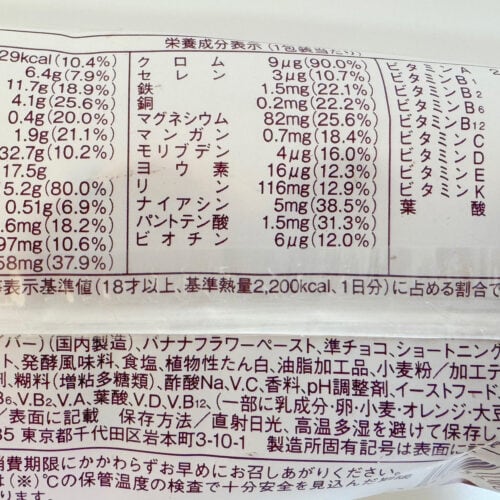 栄養成分表示 (1包装当たり)
29kcal(10.4%) ク ロ ム 9μg(90.0%) ビタミンA
6.4g(7.9%) セ レ ン 3μg(10.7%) ビタミンB1
11.7g(18.9%) 鉄 1.5mg(22.1%) ビタミンB2
4.1g(25.6%) 銅 0.2mg(22.2%) ビタミンB6
0.4g(20.0%) マグネシウム 82mg(25.6%) ビタミンB12
1.9g(21.1%) マ ン ガ ン 0.7mg(18.4%) ビタミンC
32.7g(10.2%) モリブデン 4μg(16.0%) ビタミンD
17.5g ヨ ウ 素 16μg(12.3%) ビタミンE
5.2g(80.0%) リ ン 116mg(12.9%) ビタミンK
0.51g(6.9%) ナイアシン 5mg(38.5%) 葉 酸
.6mg(18.2%) パントテン酸 1.5mg(31.3%)
97mg(10.6%) ビ オ チ ン 6μg(12.0%)
58mg(37.9%)
表示基準値(18才以上、基準熱量2,200kcal、1日分)に占める割合で
イバー)(国内製造)、バナナフラワーペースト、準チョコ、ショートニング
ト、発酵風味料、食塩、植物性たん白、油脂加工品、小麦粉/加工デ
剤、糊料(増粘多糖類)、酢酸Na、V.C、香料、pH調整剤、イーストフード
B6、V.B2、V.A、葉酸、V.D、V.B12、(一部に乳成分・卵・小麦・オレンジ・大豆
/表面に記載 保存方法/直射日光、高温多湿を避けて保存し
85 東京都千代田区岩本町3-10-1 製造所固有記号は表面に
消費期限にかかわらずお早めにお召しあがりください。
は(※)℃の保管温度の検査で十分安全を見込んだ
ります。